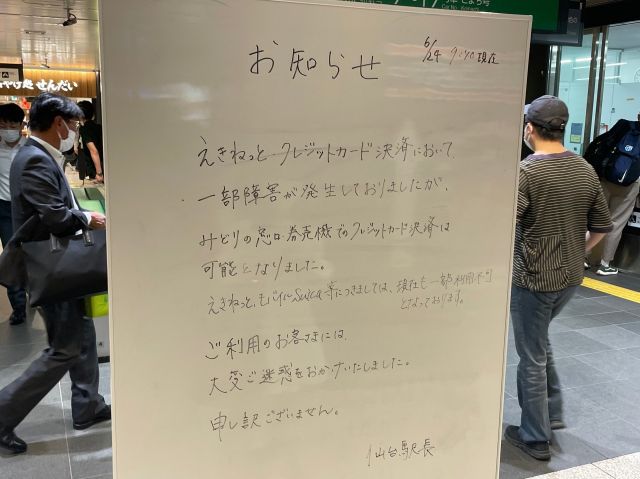 お知らせ
6/24 9:40現在
えきねっとクレジットカード決済において、
一部障害が発生しておりましたが、
みどりの窓口・券売機でのクレジットカード決済は
可能となりました。
えきねっと、モバイルSuica等につきましては、現在も一部利用不可
となっております。
ご利用のお客さまには、
大変ご迷惑をおかけいたしました。
申し訳ございません。
仙台駅長